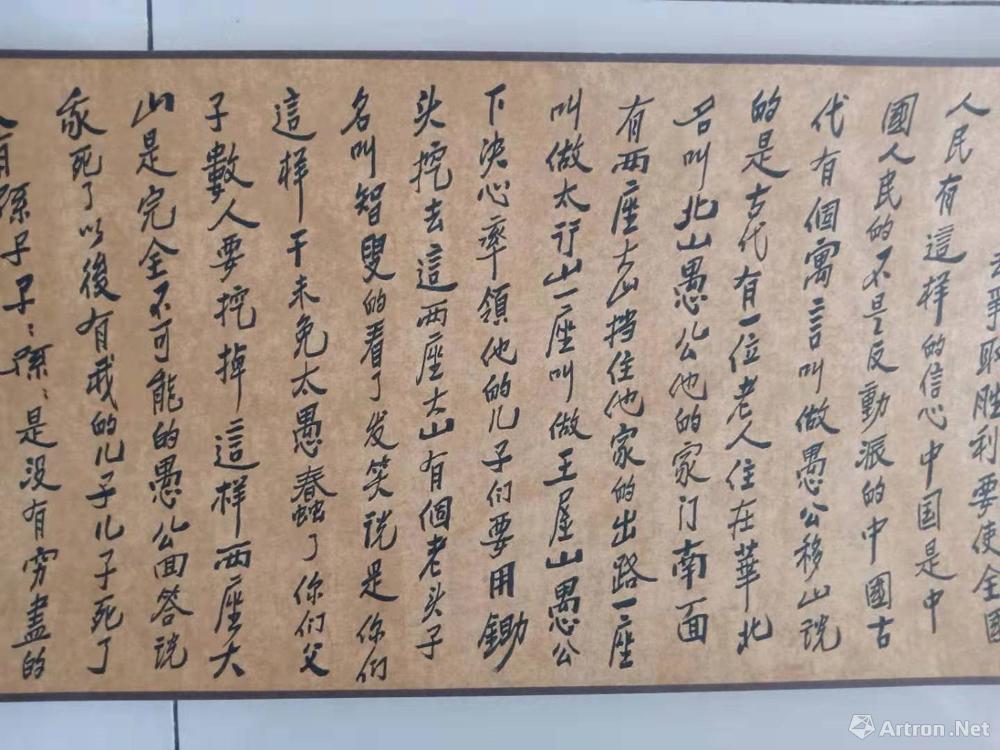 去爭取胜利要使全國
人民有這样的信心中国是中
國人民的不是反動派的中國古
代有個寓言叫做愚公移山说
的是古代有一位老人住在華北
名叫北山愚公他的家门南面
有两座大山挡住他家的出路一座
叫做太行山一座叫做王屋山愚公
下决心率領他的儿子们要用鋤
头挖去這两座大山有個老头子
名叫智叟的看了发笑说是你们
這样干未免太愚蠢了你们父
子數人要挖掉這样两座大
山是完全不可能的愚公面答说
我死了以後有我的儿子儿子死了
又有孫子子:孫:是没有穷盡的
Artron.Net